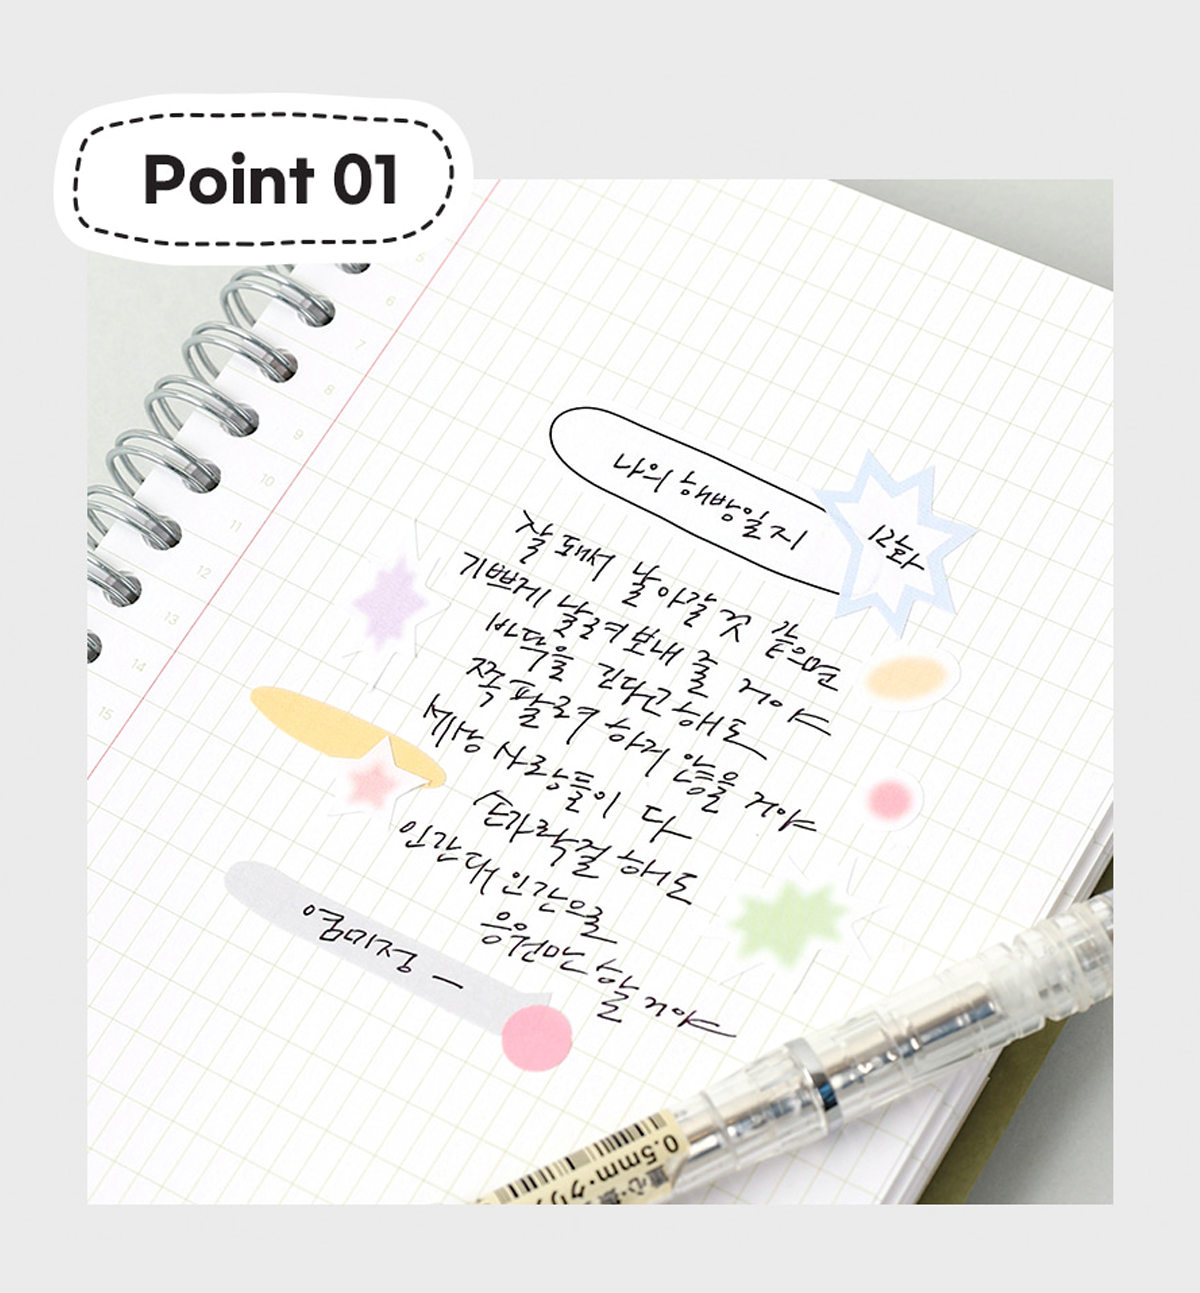 Point 01
5
6
7
8
9
10
11
12
13
14
15
나의 해방일지
12화
잘 돼서 날아갈 것 같으면
기쁘게 날려 보내 줄 거야
바닥을 긴다고 해도
쪽팔려 하지 않을 거야
세상 사람들이 다
손가락질 해도
인간대 인간으로
응원만 할 거야
염미정 —
0.5mm